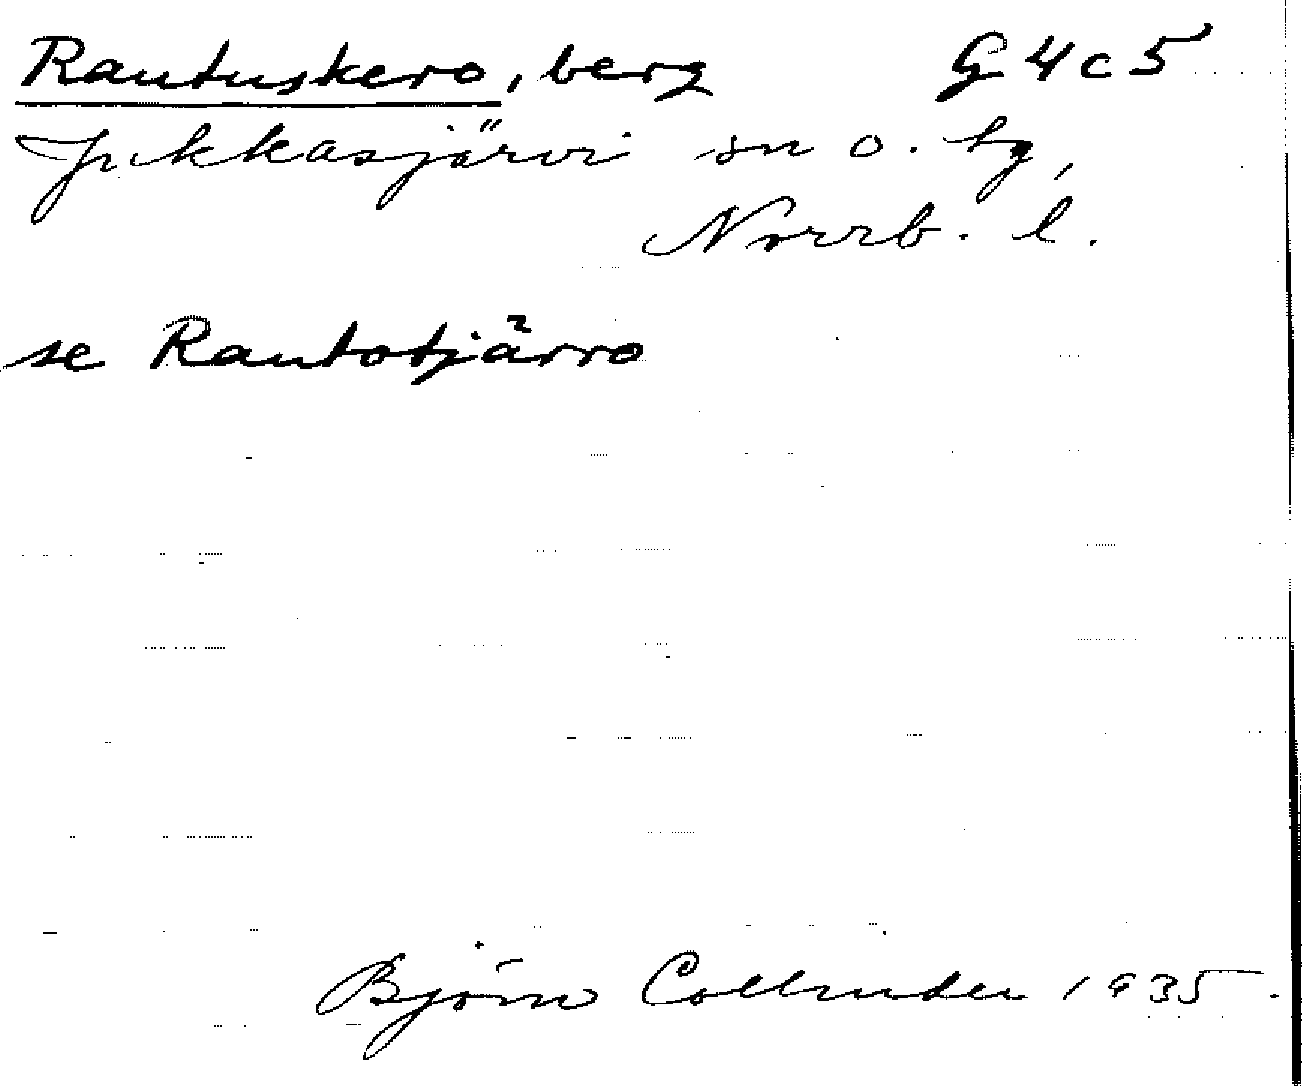 Rautuskero, berg G 4 c 5
Jukkasjärvi sn o. tg,
Norrb. l.
se Rautotjårro
Björn Collinder 1935.